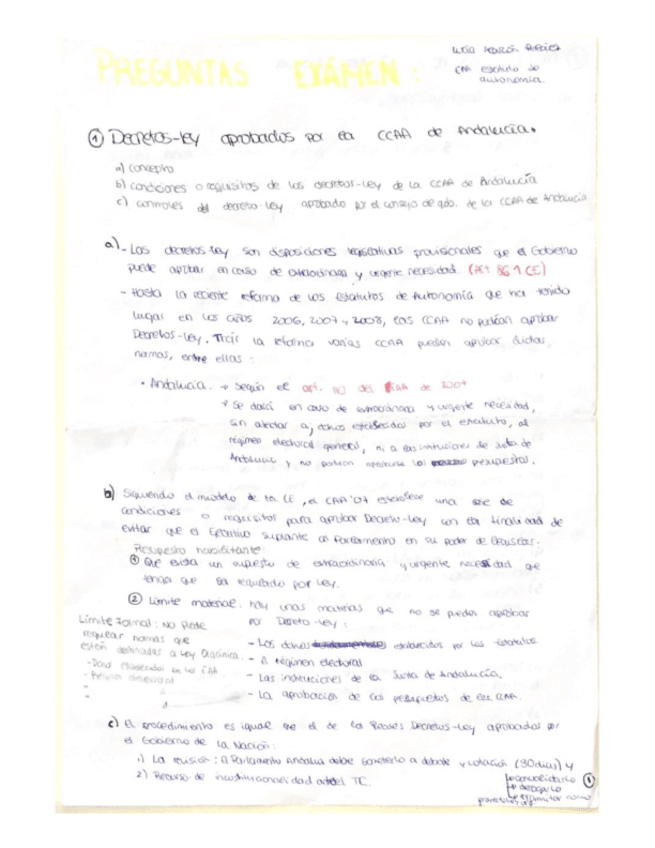 PREGUNTAS EXÁMEN:
CAA estatuto de
autonomía.
① Decretos-ley aprobados por la CCAA de Andalucía.
a) concepto
b) condiciones o requisitos de los decretos-ley de la CCAA de Andalucía
c) controles del decreto-ley aprobado por el consejo de gob. de la CCAA de Andalucía
a) - Los decretos-ley son disposiciones legislativas provisionales que el Gobierno
puede aprobar en caso de extraordinaria y urgente necesidad. (Art 86.1 CE)
- Hasta la reciente reforma de los Estatutos de Autonomía que ha tenido
lugar en los años 2006, 2007 y 2008, las CCAA no podían aprobar
Decretos-ley. Tras la reforma varias CCAA pueden aprobar dichas
normas, entre ellas:
• Andalucía. → Según el art. 110 del EAA de 2007
→ Se dará en caso de extraordinaria y urgente necesidad,
sin afectar a dchos establecidos por el estatuto, al
régimen electoral general, ni a las instituciones de Junta de
Andalucía y no podrán aprobarse los presupuestos.
b) Siguiendo el modelo de la CE, el EAA'07 establece una serie de
condiciones o requisitos para aprobar Decreto-Ley con la finalidad de
evitar que el Ejecutivo suplante al Parlamento en su poder de legislar.
Presupuesto habilitante:
① Que exista un supuesto de extraordinaria y urgente necesidad que
tenga que ser regulado por ley.
② Límite material: hay unas materias que no se pueden aprobar
por Decreto-ley:
Límite Formal: No puede
regular normas que
estén destinadas a Ley Orgánica:
- Los dchos establecidos por los estatutos
- El régimen electoral
- Las instituciones de la Junta de Andalucía.
- La aprobación de los presupuestos de las CCAA.
c) El procedimiento es igual que el de los Reales Decretos-Ley aprobados por
el Gobierno de la Nación:
1) La revisión: el Parlamento Andaluz debe someterlo a debate y votación (30 días) y
2) Recurso de inconstitucionalidad ante el TC.
→ convalidarlo
→ derogarlo
①